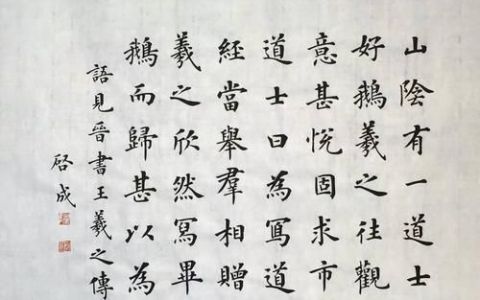 山陰有一道士
好鵝羲之往觀
意甚悅固求市
道士曰為冩道
經當舉羣相贈
羲之欣然冩畢
鵝而歸甚以為
語見晉書王羲之傳
啓成